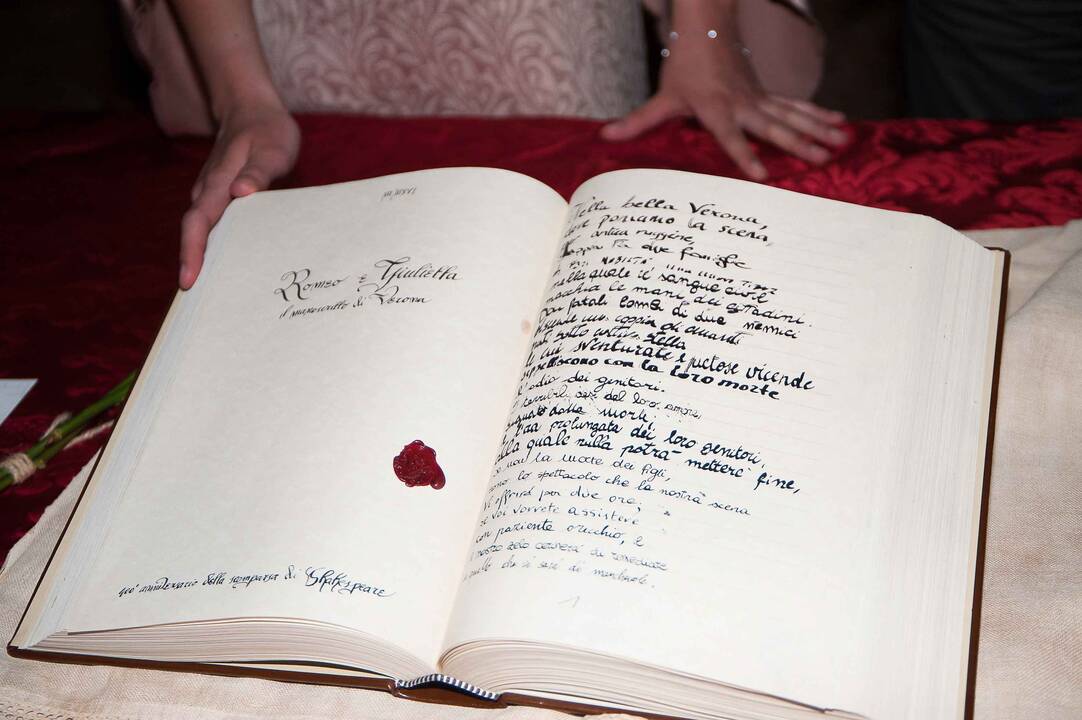 Romeo e Giulietta
il manoscritto di Verona
400° anniversario della scomparsa di Shakespeare
Nella bella Verona,
dove poniamo la scena,
antica ruggine,
scoppia fra due famiglie
nella quale il sangue civile
macchia le mani dei cittadini.
Dai fatali lombi di due nemici
discende una coppia di amanti
nati sotto cattiva stella
le cui sventurate e pietose vicende
seppelliscono con la loro morte
l'odio dei genitori.
I terribili casi del loro amore,
segnato dalla morte,
l'ira prolungata dei loro genitori,
alla quale nulla potrà mettere fine,
se non la morte dei figli,
sono lo spettacolo che la nostra scena
vi offrirà per due ore;
se voi vorrete assistere
con paziente orecchio, e
il nostro zelo cercherà di rimediare
a quello che vi sarà di manchevole.
1